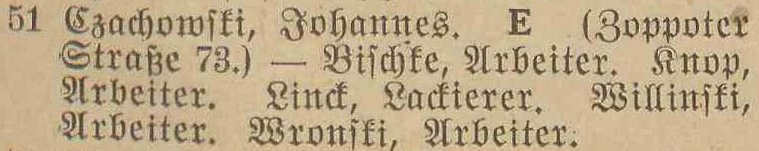 51 Czachowſki, Johannes. E (Zoppoter
Straße 73.) — Biſchke, Arbeiter. Knop,
Arbeiter. Linck, Lackierer. Willinſki,
Arbeiter. Wronſki, Arbeiter.